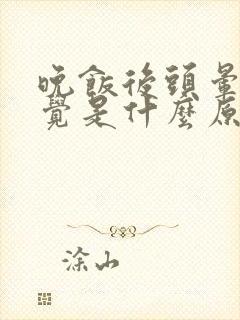 晚飯後頭暈
覺是什麼原
涂山